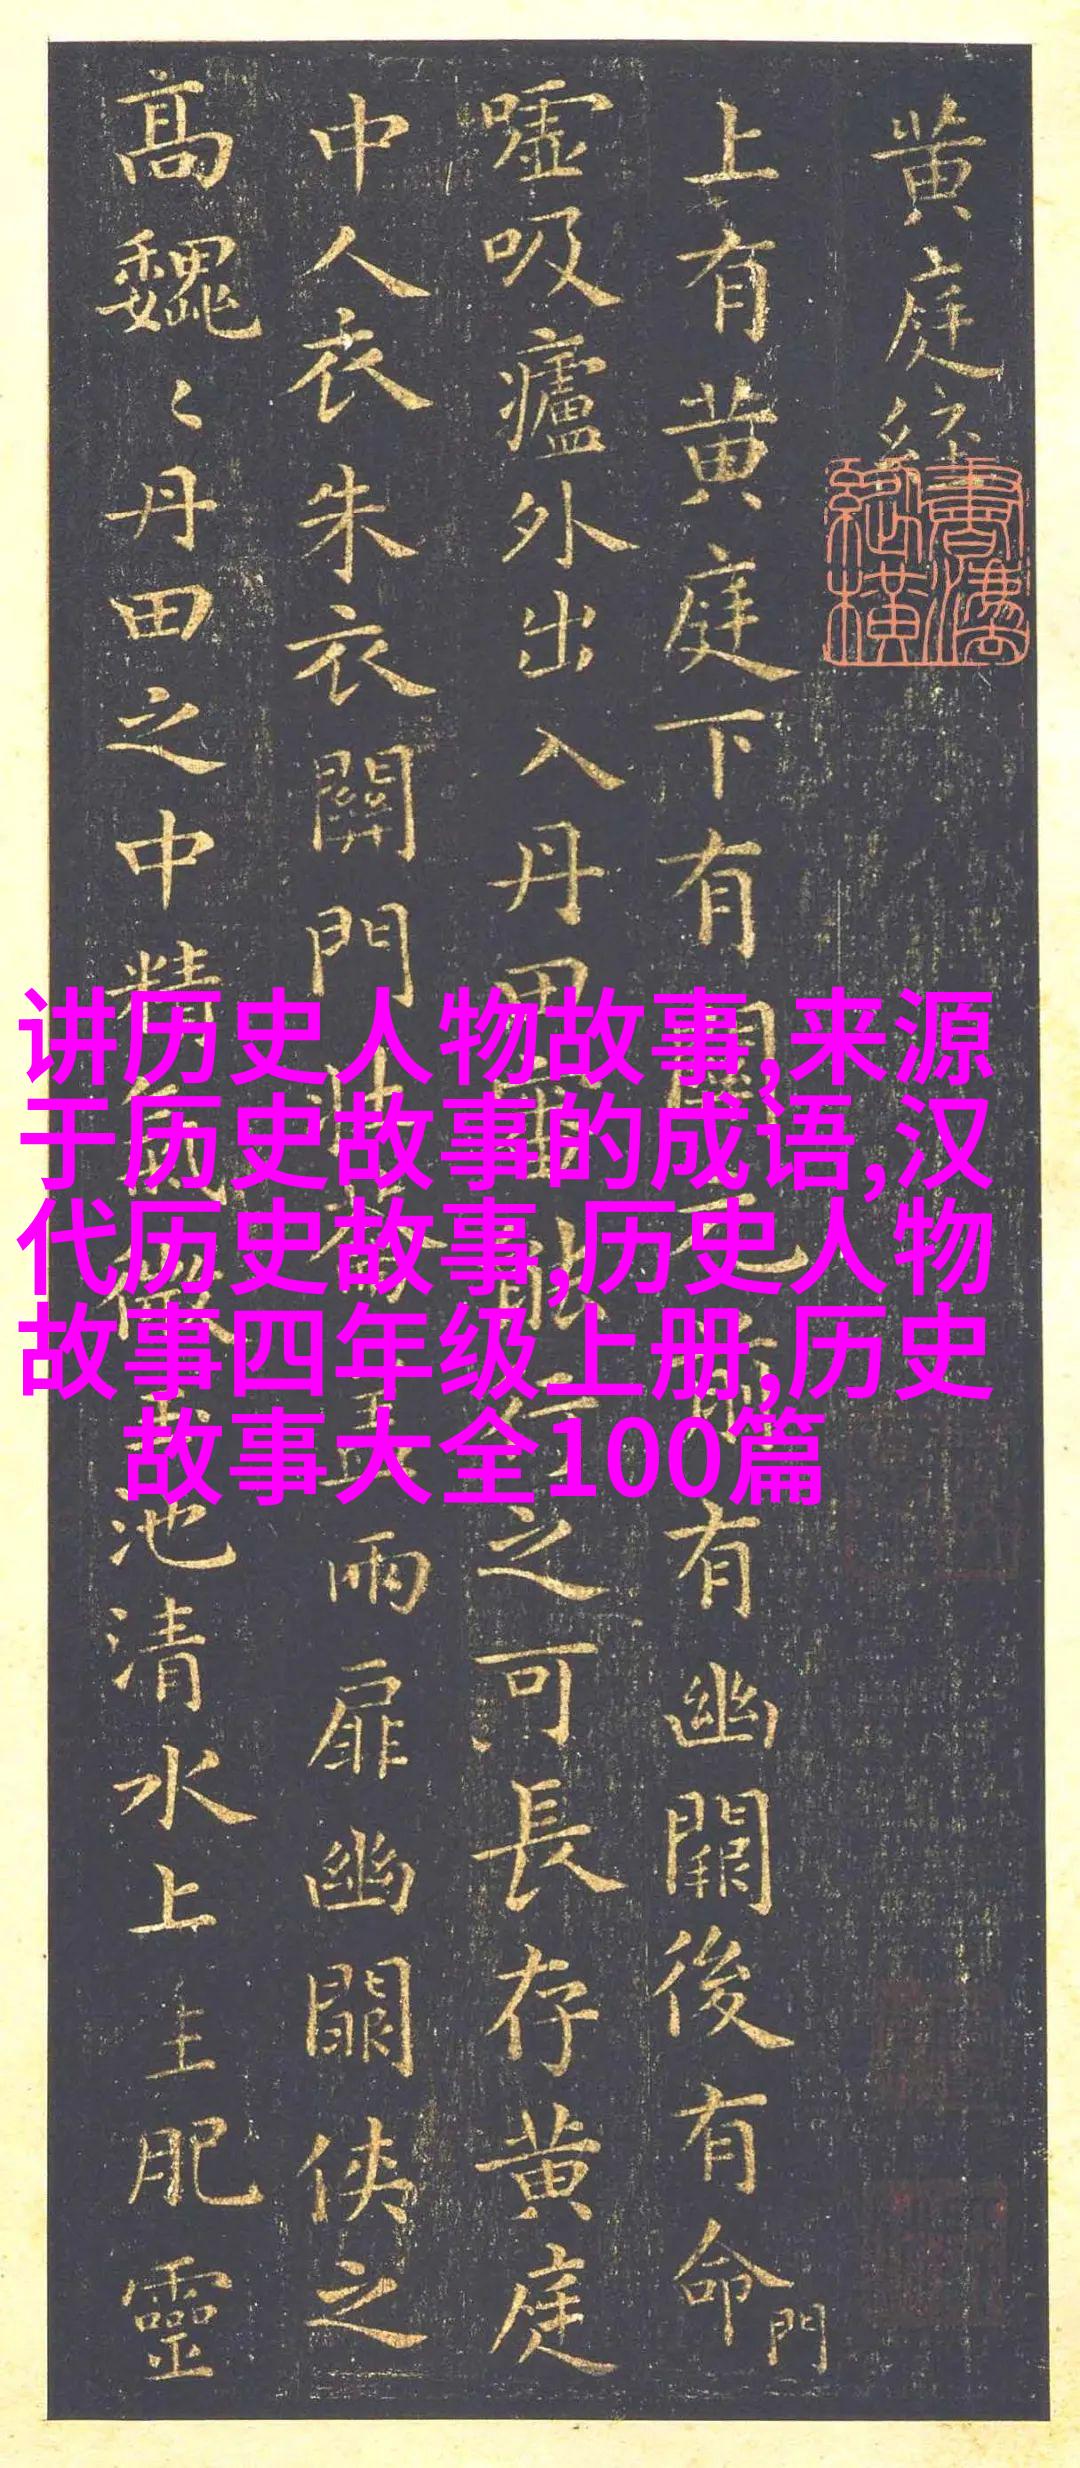 黄庭経
上有黄庭下有關元前有幽闕後有命門
嘘吸廬外出入丹田審能行之可長存黄庭
中人衣朱衣關門壯籥蓋兩扉幽闕俠之
高魏〻丹田之中精氣微玉池清水上生肥靈
讲历史人物故事,来源
于历史故事的成语,汉
代历史故事,历史人物
故事四年级上册,历史
故事大全100篇